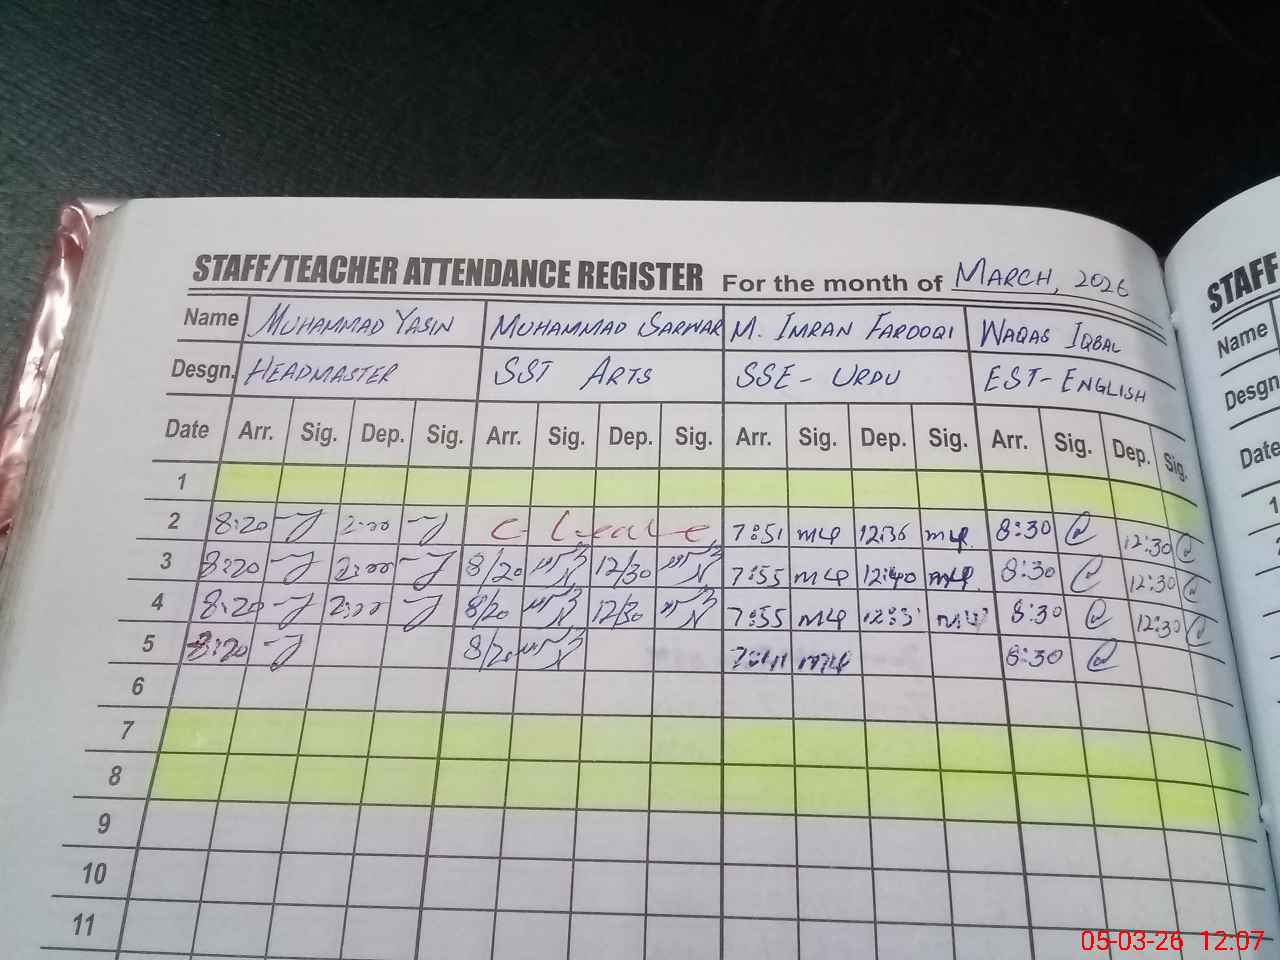 STAFF/TEACHER ATTENDANCE REGISTER For the month of MARCH, 2026
Name MUHAMMAD YASIN MUHAMMAD SARWAR M. IMRAN FAROOQI WAQAS IQBAL
Desgn. HEADMASTER SST ARTS SSE - URDU EST - ENGLISH
Date Arr. Sig. Dep. Sig. Arr. Sig. Dep. Sig. Arr. Sig. Dep. Sig. Arr. Sig. Dep. Sig.
1
2 8:20 2:00 C-Leave 7:51 12:36 8:30 12:30
3 8:20 2:00 8/20 12/30 7:55 12:40 8:30 12:30
4 8:20 2:00 8/20 12/30 7:55 8:30 12:30
5 8:20 8/20 7:41 8:30
6
7
8
9
10
11
STAFF
Name
Desgn
Date
1
05-03-26 12:07